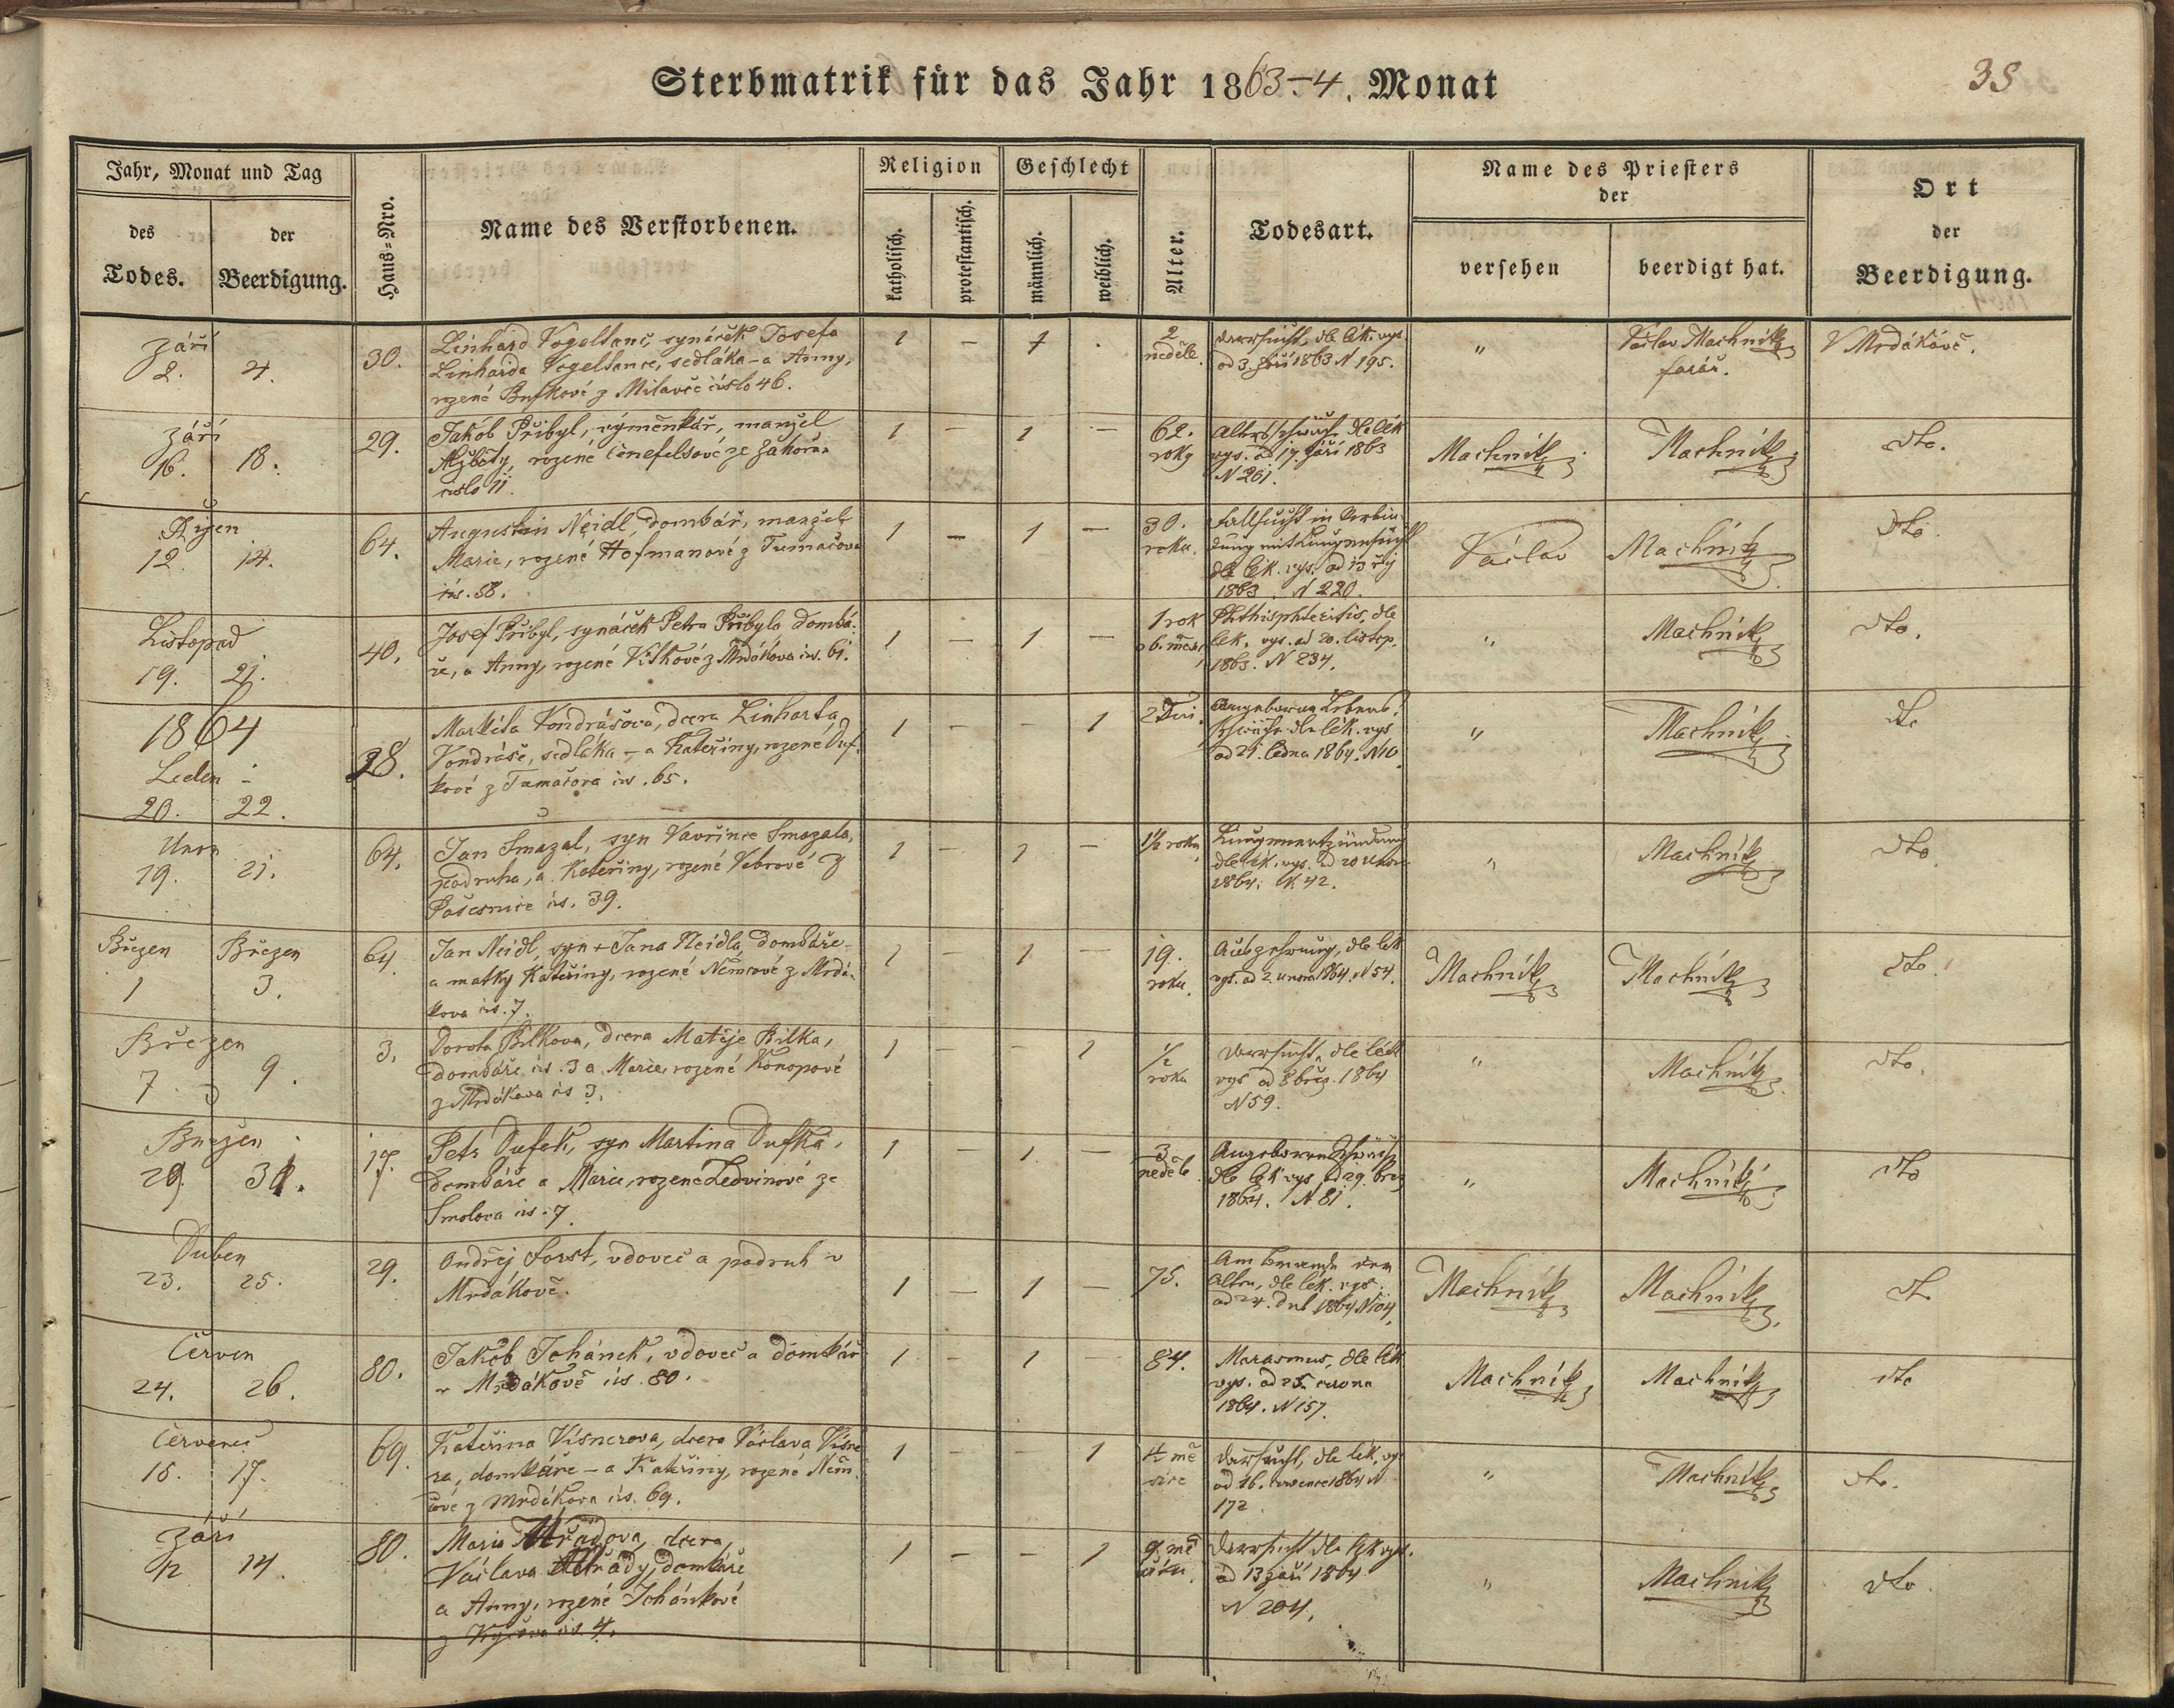 Sterbmatrik für das Jahr 1863-4. Monat
Jahr, Monat und Tag
des Todes.
der Beerdigung.
Haus-Nro.
Name des Verstorbenen.
Religion
katholisch.
protestantisch.
Geschlecht
männlich.
weiblich.
Alter.
Todesart.
Name des Priesters
der
versehen
beerdigt hat.
Ort
der
Beerdigung.
Září
2. 4. 30.
Linhard Vogeltanc, synáček Josefa
Linharda Vogeltance, sedláka - a Anny,
rozené z Milavče číslo 46.
1 — 1 .
2
neděle
Darrsucht, dle lék. vys.
od 3. září 1863 N 195.
"
Václav Machník
farář.
V Mrdákově.
Září
16. 18. 29.
Jakob Přibyl, výměnkář, manžel
Alžběty, rozené ze Zahořan
číslo 11.
1 — 1 —
62.
roky
Altersschwäche dle lék
vys. od 17. září 1863
N 201.
Machník
Machník
dto.
Říjen
12. 14. 64.
Augustin Neidl domkář, manžel
Marie, rozené Hofmanové z Tumačova
čís. 58.
1 — 1 —
30.
roku.
Fallsucht in Verbin-
dung mit Lungensucht
dle lék. vys. od 13 říj
1863 N 220.
Václav
Machník
dto.
Listopad
19. 21. 40.
Josef Přibyl, synáček Petra Přibyla domká-
ře, a Anny, rozené z Mrdákova čís. 61.
1 — 1 —
1 rok
6. měs.
dle
lék. vys. od 20. listop.
1863. N 234.
"
Machník
dto.
1864
Leden
20. 22. 28.
Markéta Vondrášova, dcera Linharta
Vondráše, sedláka - a Kateřiny, rozené Duf-
kové z Tumačova čís. 65.
1 — — 1
2 Dni.
Angeborene Lebens-
schwäche dle lék. vys
od 21. ledna 1864. N 10.
"
Machník
dto
Unor
19. 21. 64.
Jan Smazal, syn Vavřince Smazala,
podruha, a Kateřiny, rozené Vebrové z
Pasečnice čís. 39.
1 — 1 —
1½ roku
Lungenentzündung
dle lék. vys. od 20 unor
1864. N 42.
"
Machník
dto
Březen Březen
1 3. 64
Jan Neidl, syn + Jana Neidla domkáře -
a matky Kateřiny, rozené Němcové z Mrdá-
kova čís. 7.
1 — 1 —
19.
roku.
Auszehrung, dle lék
vys. od 2. unora 1864. N 54.
Machník
Machník
dto.
Březen
7. 9. 3.
Dorota Bílkova, dcera Matěje Bílka,
domkáře čís. 3 a Marie, rozené Konopové
z Mrdákova čís 3.
1 — — 1
½
roku
Darrsucht, dle lék
vys od 8 břez. 1864
N 59.
"
Machník
dto.
Březen
29. 31. 17.
Petr Dufek, syn Martina Dufka,
domkáře a Marie, rozené Ledvinové ze
Smolova čís. 7.
1 — 1 —
3
neděle
Angeborene Schwäche
dle lék vys od 29. břez
1864. N 81.
"
Machník
dto
Duben
23. 25. 29.
Ondřej Forst, vdovec a podruh v
Mrdákově.
1 — 1 —
75.
Am Brande der
Alten, dle lék. vys.
od 24. dub 1864 N 104.
Machník
Machník
dto
Červen
24. 26. 80.
Jakob Johánek, vdovec a domkář
v Mrdákově čís. 80.
1 — 1 —
84.
Marasmus, dle lék
vys. od 25. června
1864. N 157.
Machník
Machník
dto
Červenec
15. 17. 69.
Kateřina Vísnerova, dcera Václava Vísne-
ra, domkáře - a Kateřiny, rozené Něm-
cové z Mrdákova čís. 69.
1 — — 1
4 mě
síce
Darrsucht, dle lék. vys
od 16. července 1864 N
172.
"
Machník
dto.
Září
12 14. 80.
Marie dcera
Václava domkáře
a Anny, rozené Johánkové
z čís. 4.
1 — — 1
9. mě
síců.
Darrsucht dle lék vys.
od 13 září 1864
N 204.
"
Machník
dto.